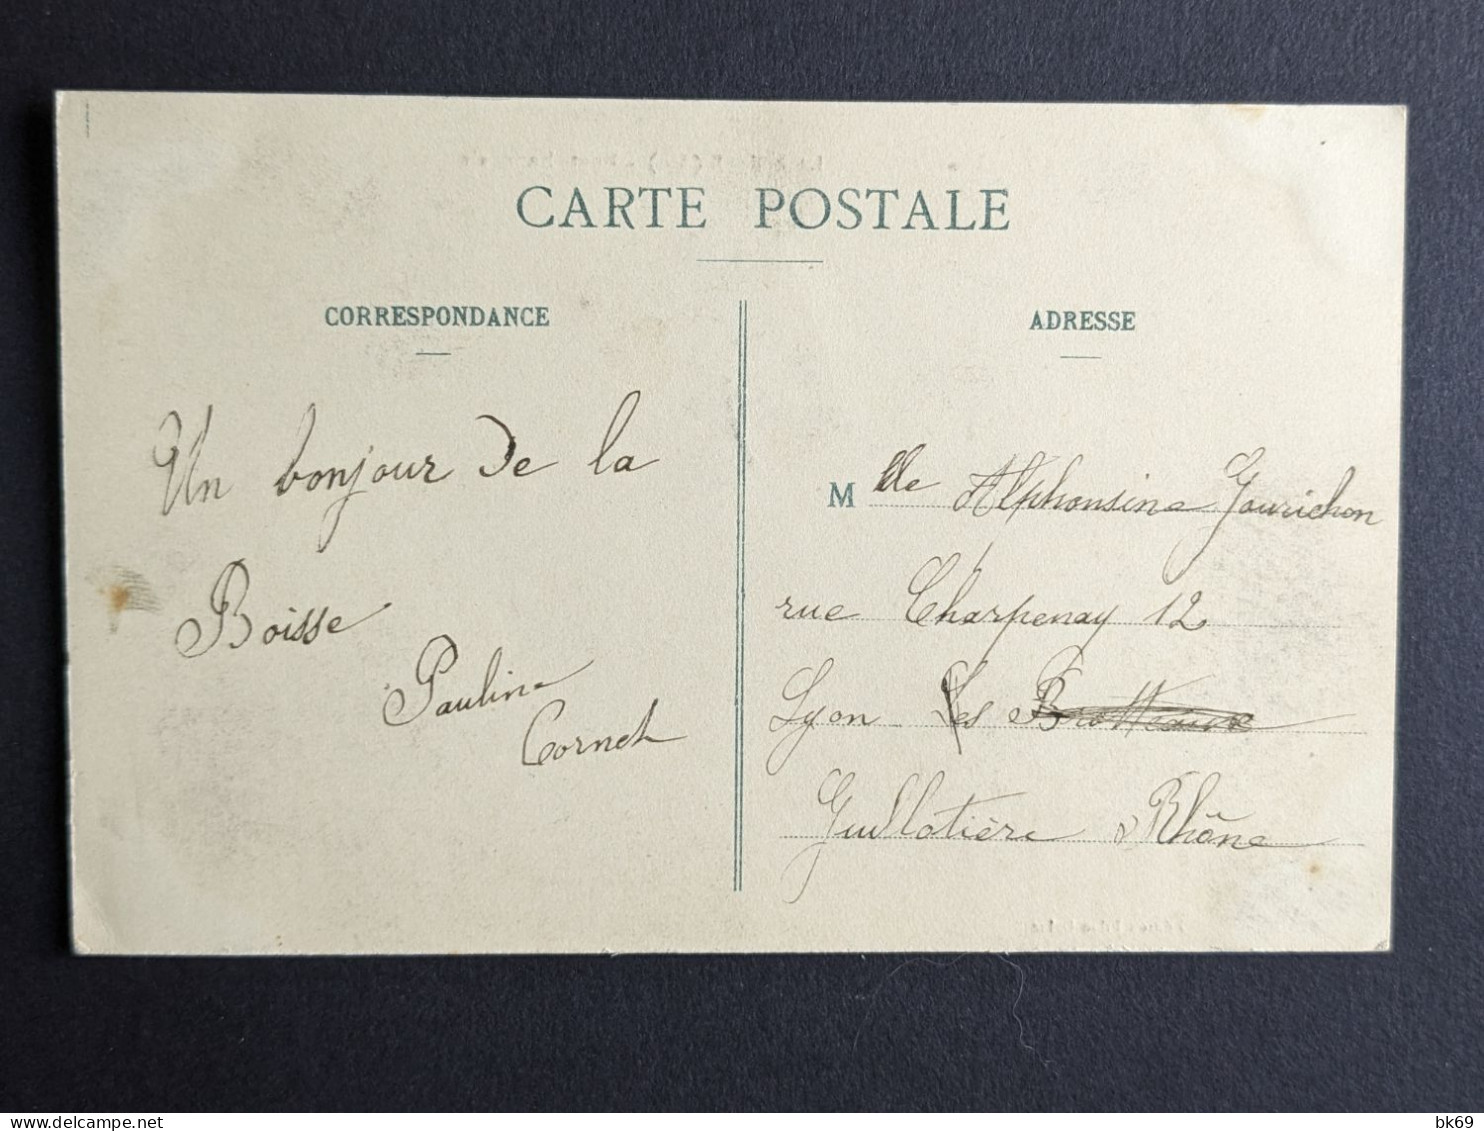 CARTE POSTALE
CORRESPONDANCE
Un bonjour de la
Boisse
Pauline
Cornet
ADRESSE
Mlle Alphonsine Gourichon
rue Charpenay 12
Lyon Les Brotteaux
Guillotière Rhône
bk69